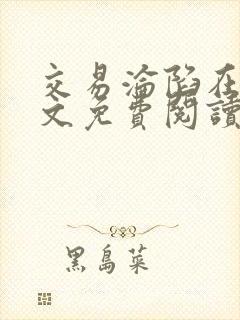 交易淪陷在
文免費閱讀
黑島菜